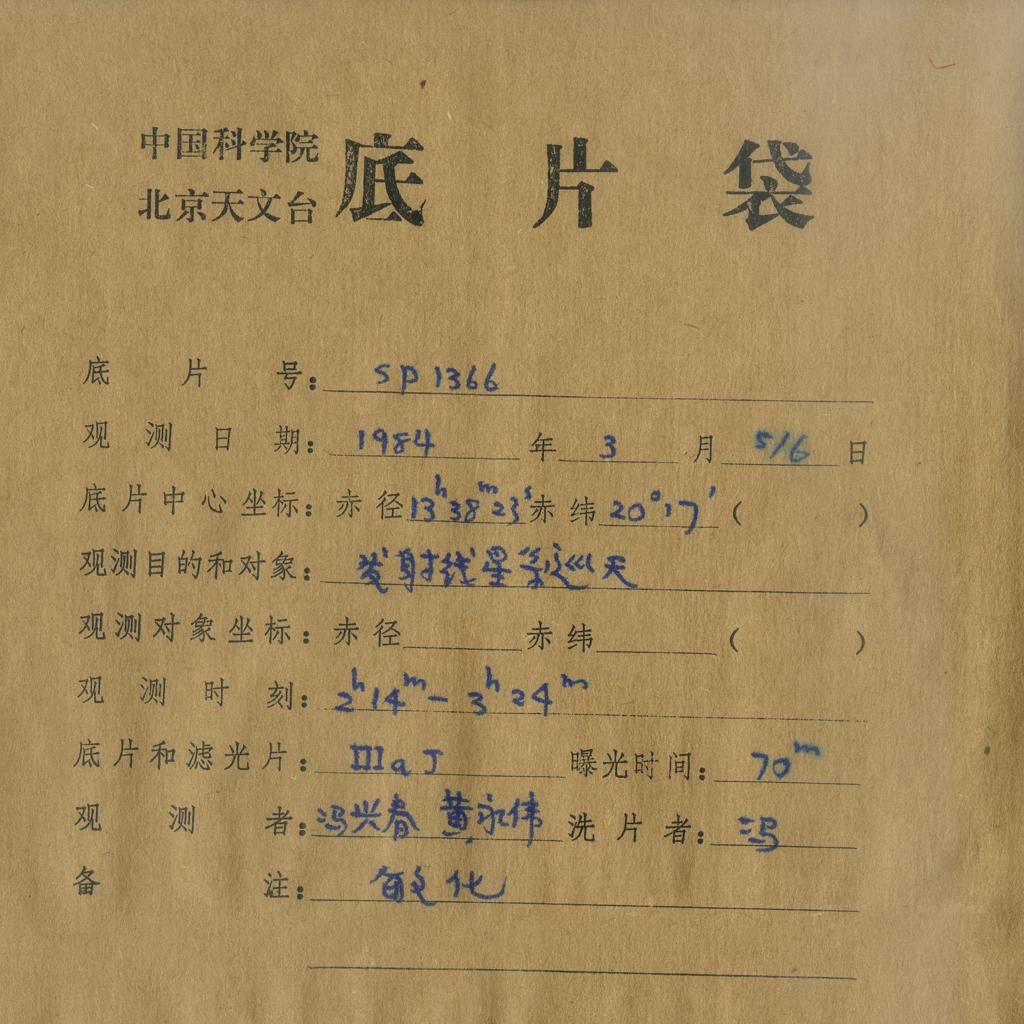 中国科学院
北京天文台
底片袋
底片号： SP 1366
观测日期： 1984 年 3 月 5/6 日
底片中心坐标： 赤径 13h38m23s 赤纬 20°17′ ( )
观测目的和对象： 发射线星系巡天
观测对象坐标： 赤径 赤纬 ( )
观测时刻： 2h14m - 3h24m
底片和滤光片： IIIaJ 曝光时间： 70m
观测者： 冯兴春 黄永伟 洗片者： 冯
备注： 敏化